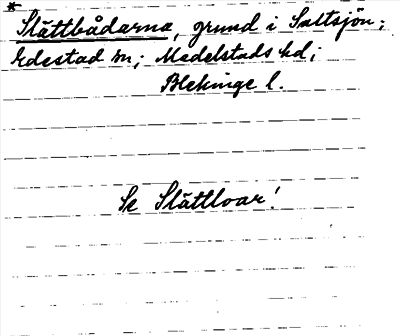 *
Slättbådarna, grund i Saltsjön;
Edestad sn; Medelstads hd;
Blekinge l.
Se Slättloar!